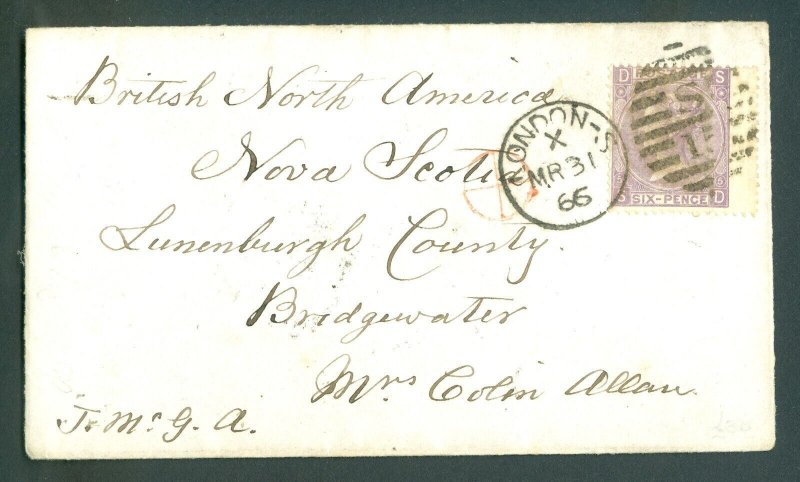 British North America
Nova Scotia
Lunenburgh County.
Bridgewater
Mrs Colin Allan.
J. Mc G. A.
LONDON-S
X
MR 31
66
D S
SIX-PENCE
D